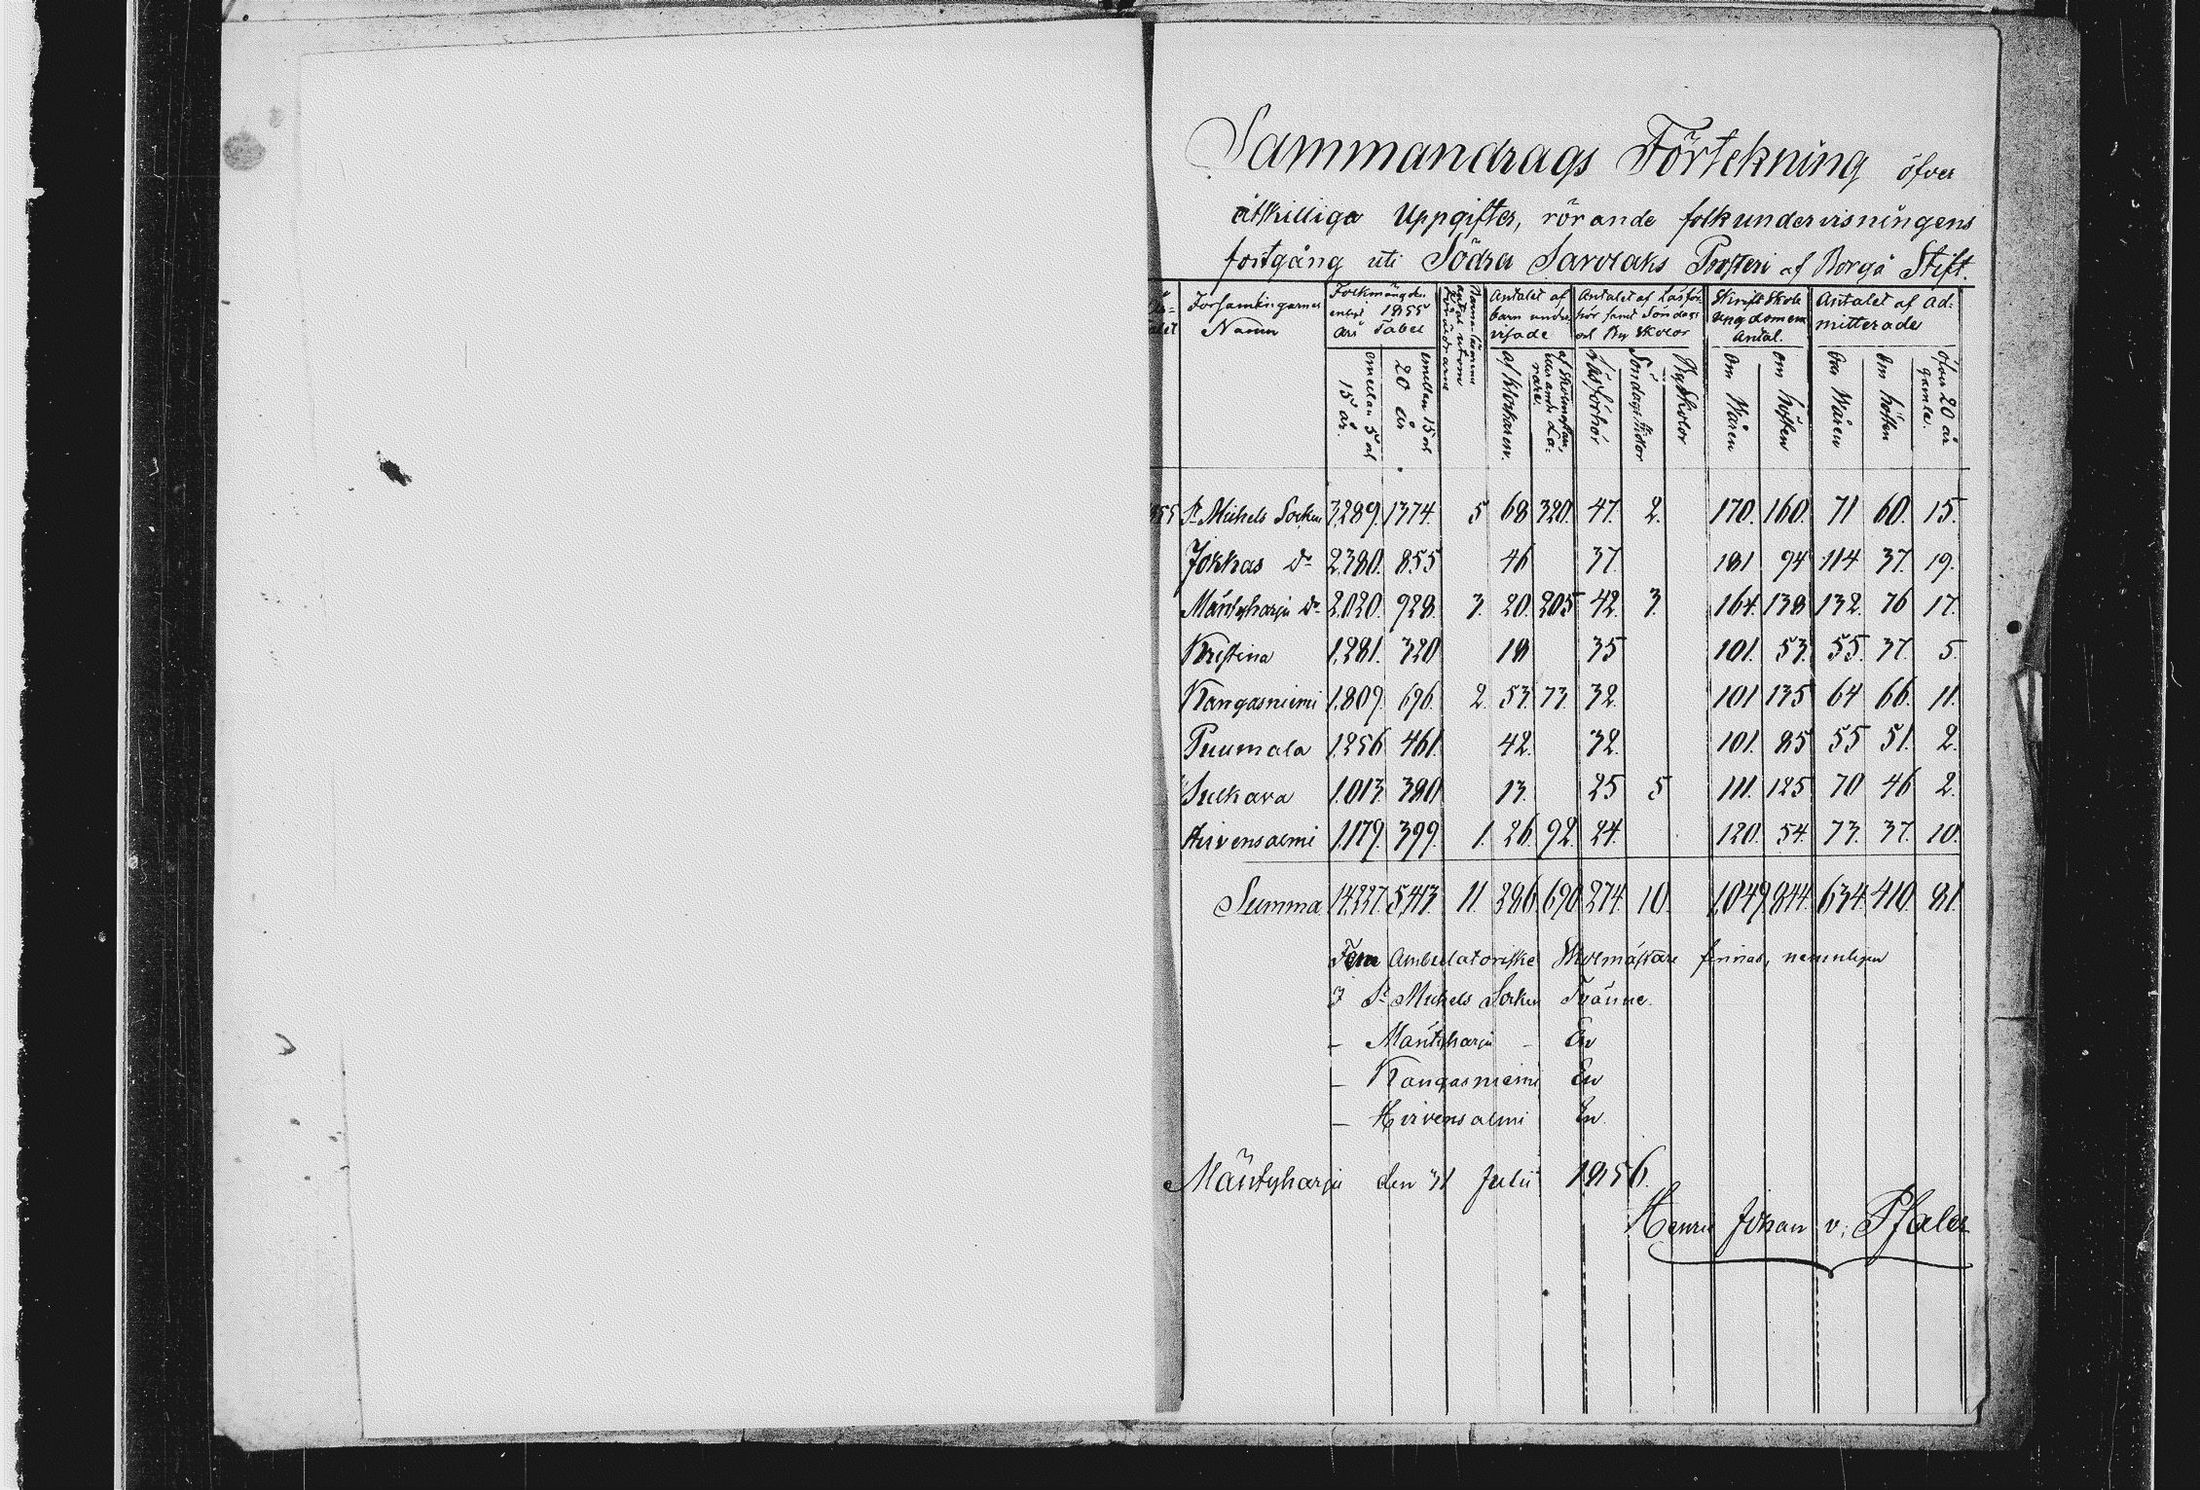 Sammandrags Förtekning öfver
åtskilliga Uppgifter, rörande folkundervisningens
fortgång uti Södra Savolaks Prosteri af Borgå Stift.
Församlingarnes Namn
Folkmängden enligt 1855 års Tabel
emellan 5 o 15 år.
emellan 15 o 20 år
Antalet af barn undervisade
af klockaren.
Antalet af Läsförhör samt Söndags och By Skolor
Läsförhör
Söndags Skolor
By Skolor
Skrift Skole Ungdomens Antal.
Om Wåren
om hösten
Antalet af admitterade
Om Wåren
Om hösten
öfver 20 år gamla.
St Michels Socken 3289. 1374. 5 68 320. 47. 2. 170. 160. 71 60. 15.
Jokkas do 2380. 855 46 37. 181 94 114 37. 19.
Mäntyharju do 2020. 928. 3. 20. 205 42. 3. 164. 138 132. 76 17.
Kristina 1281. 320 18 35 101. 53. 55. 37. 5.
Kangasniemi 1809. 696. 2. 53. 73. 32. 101 135 64 66. 11.
Puumala 1256 461. 42. 32. 101. 85 55 51. 2.
Sulkava 1013. 380 13. 25 5 111. 125 70 46 2.
Hirvensalmi 1179. 399. 1. 26. 92. 24. 120. 54. 73. 37. 10.
Summa 14227. 5413. 11. 286. 690. 274. 10. 1049. 844. 634. 410. 81.
Fem Ambulatoriske Skolmästare finnas, nemligen
I St Michels Socken Tvänne.
– Mäntyharju – En
– Kangasniemi En
– Hirvensalmi En.
Mäntyharju den 31 Julii 1856.
Henric Johan v. Pfaler